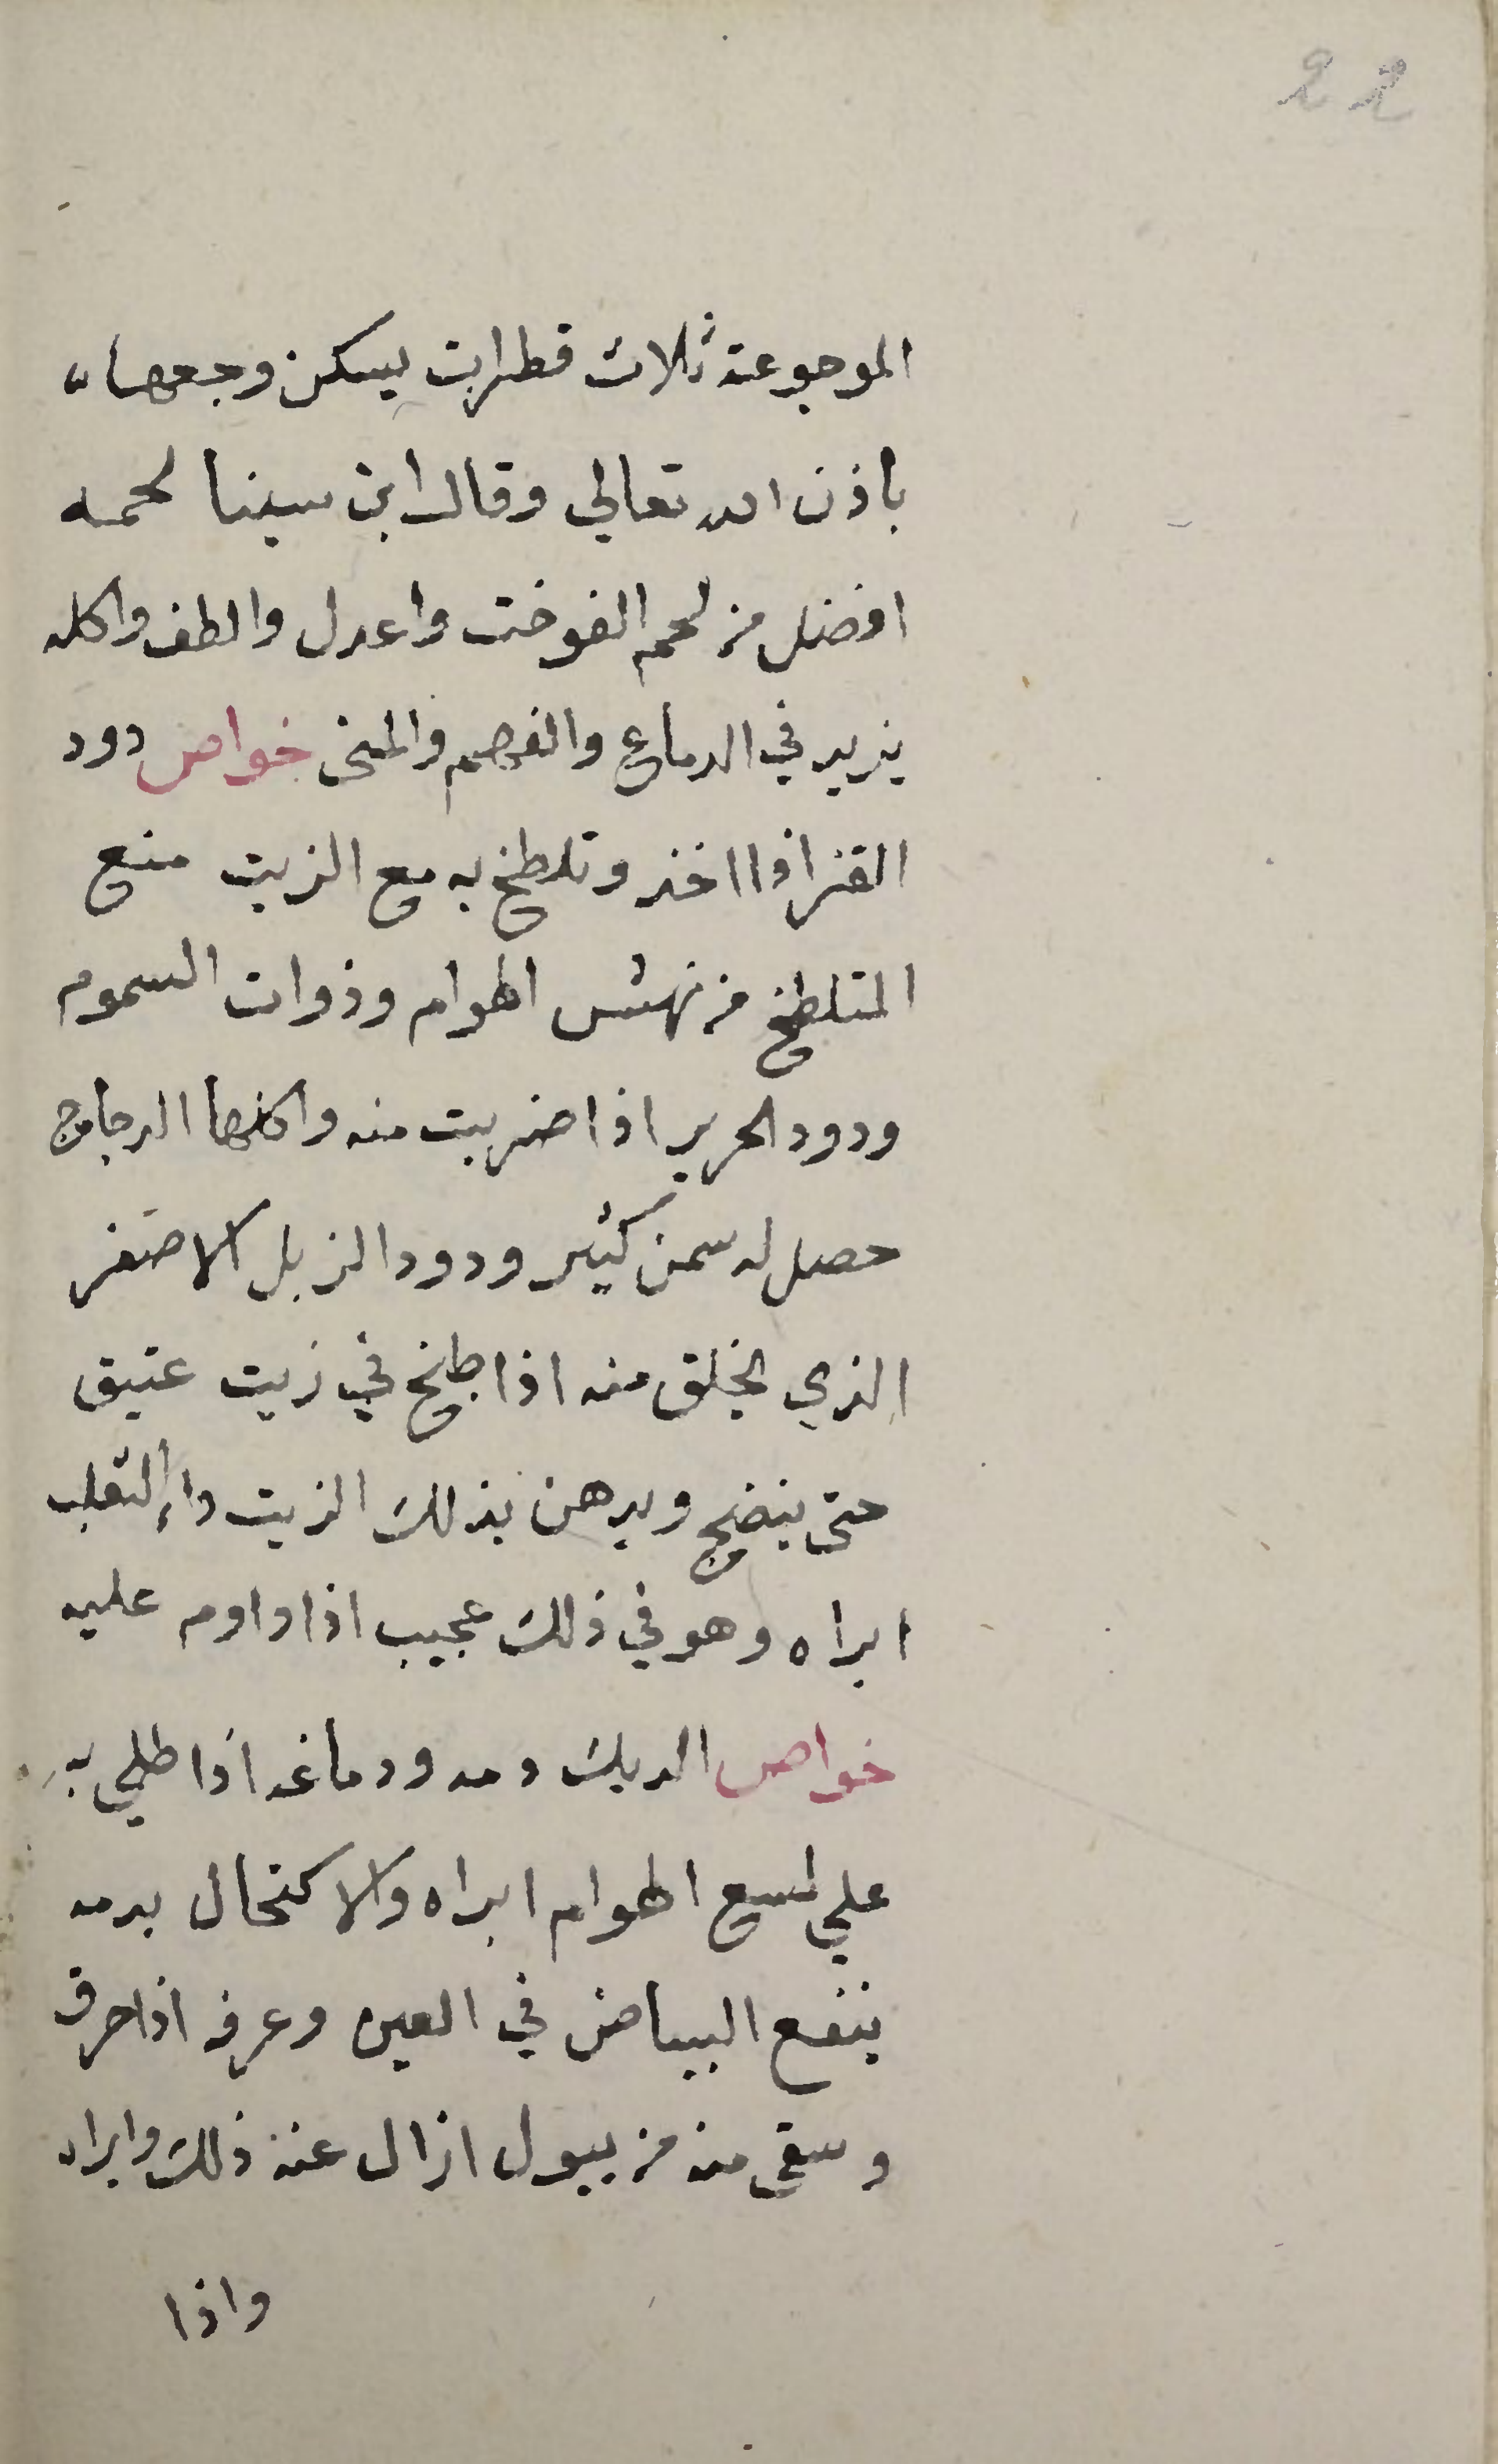 22
الموجوعة ثلاث قطرات يسكن وجعها
باذن الله تعالي وقال ابن سينا لحمه
افضل من لحم الفوخت واعدل والطف واكله
يزيد في الدماغ والفهم والمني خواص دود
القز اذا اخذ وتلطخ به مع الزيت منع
المتلطخ من نهش الهوام وذوات السموم
ودود الحرير اذا ضربت منه واكلها الدجاج
حصل له سمن كثير ودود الزبل الاصفر
الذي يخلق منه اذا طبخ في زيت عتيق
حتى ينضج ويدهن بذلك الزيت داء الثعلب
ابراه وهو في ذلك عجيب اذا داوم عليه
خواص الديك دمه ودماغه اذا طلي به
علي لسع الهوام ابراه والاكتحال بدمه
ينفع البياض في العين وعرفه اذا حرق
وسقى منه من يبول ازال عنه ذلك وابراه
واذا